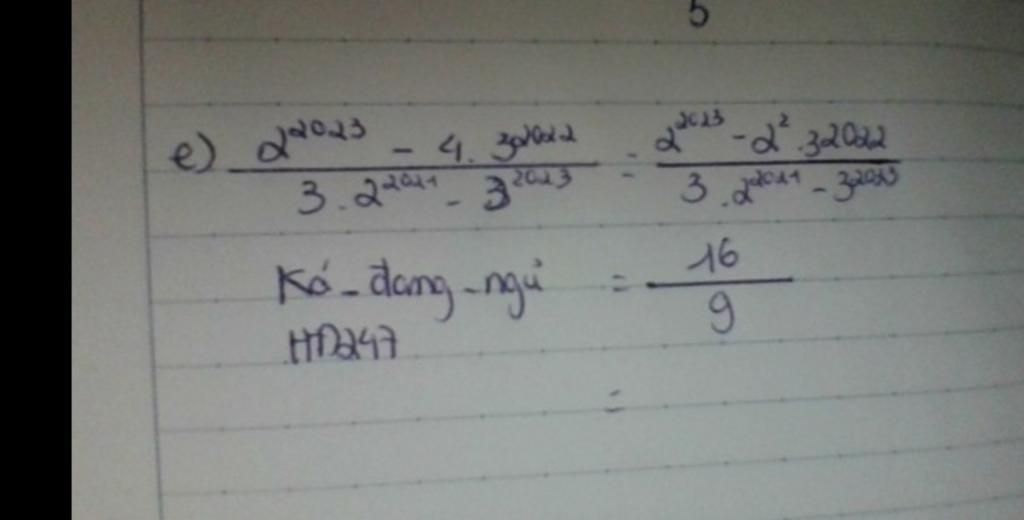 5
e) \frac{2^{2023} - 4 . 3^{2022}}{3 . 2^{2021} - 3^{2023}} = \frac{2^{2023} - 2^2 . 3^{2022}}{3 . 2^{2021} - 3^{2023}}
Ká-đang-ngủ = \frac{16}{9}
HD247
=